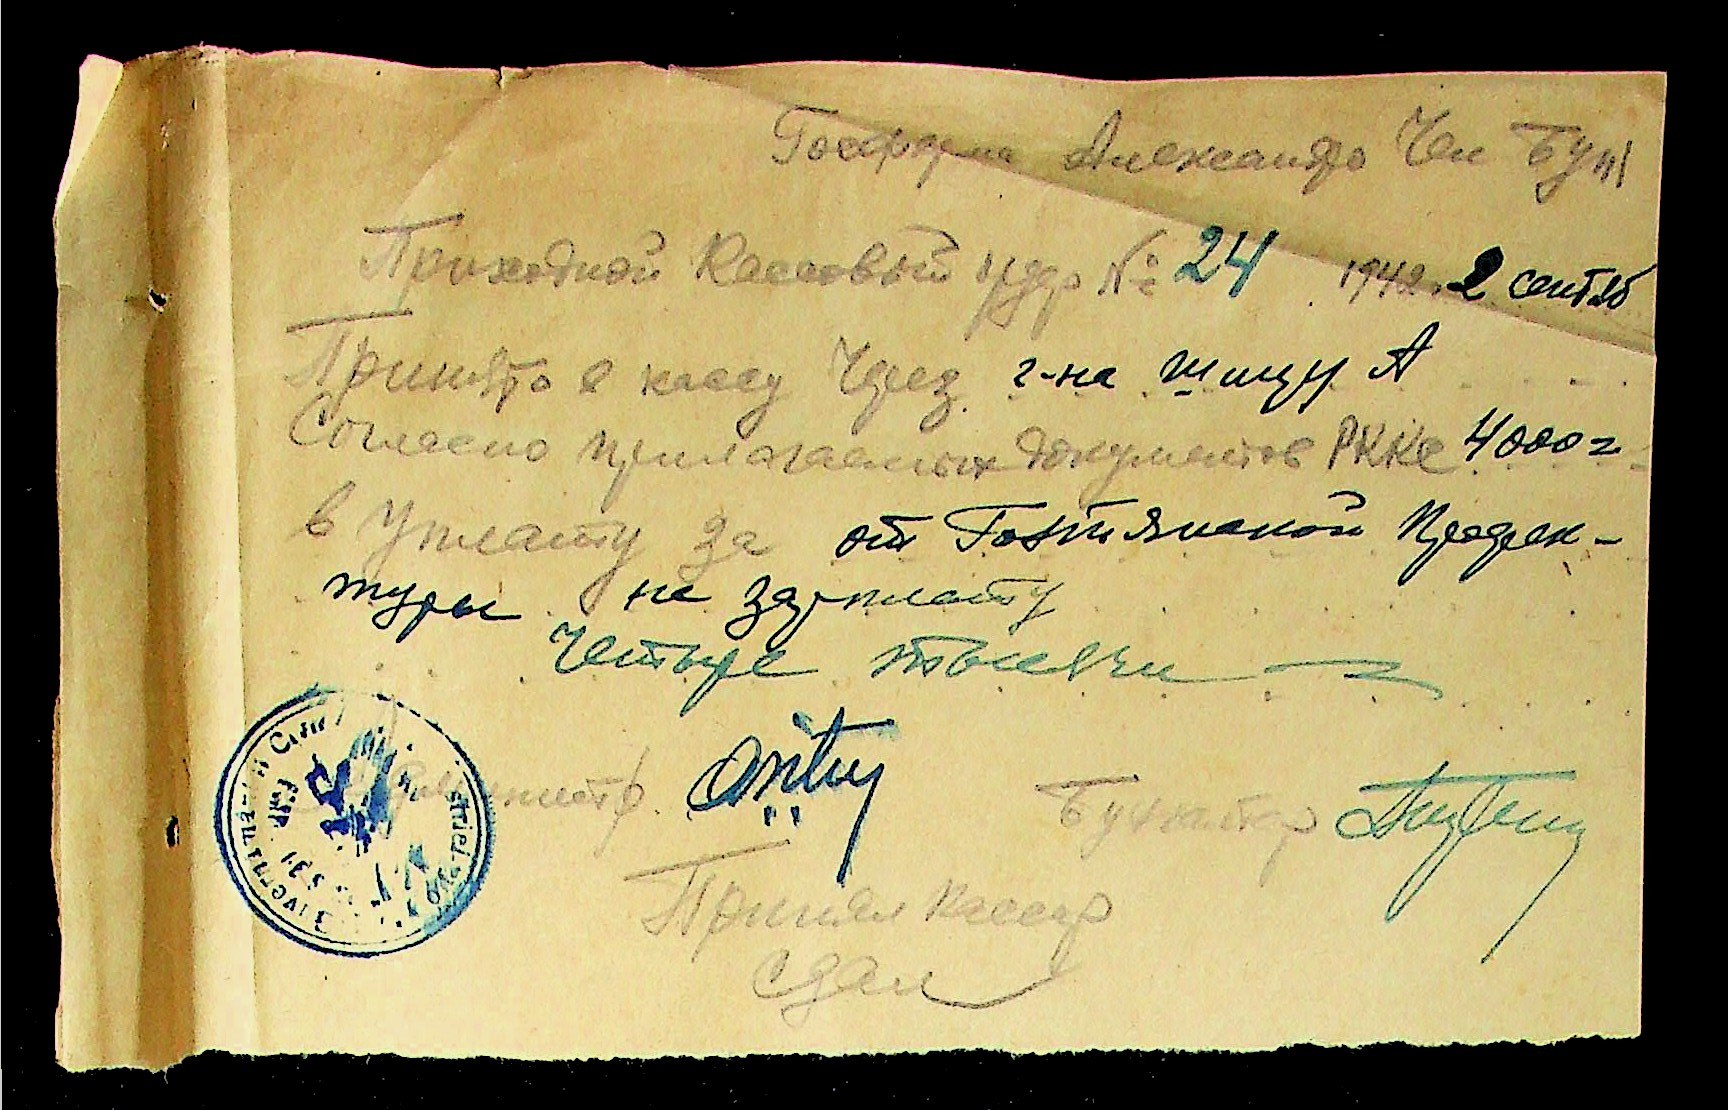 Госферма Александро Чен Бун
Приходной Кассовый ордр № 24 1942 г. 2 сентяб
Принято в кассу Через г-на А
Согласно прилагаемых документов РККС 4000 =
в Уплату за от Голтянской Префек-
туры на зарплату
Четыре тысячи
Администр.
Бухгалтер
Принял кассир
Сдал